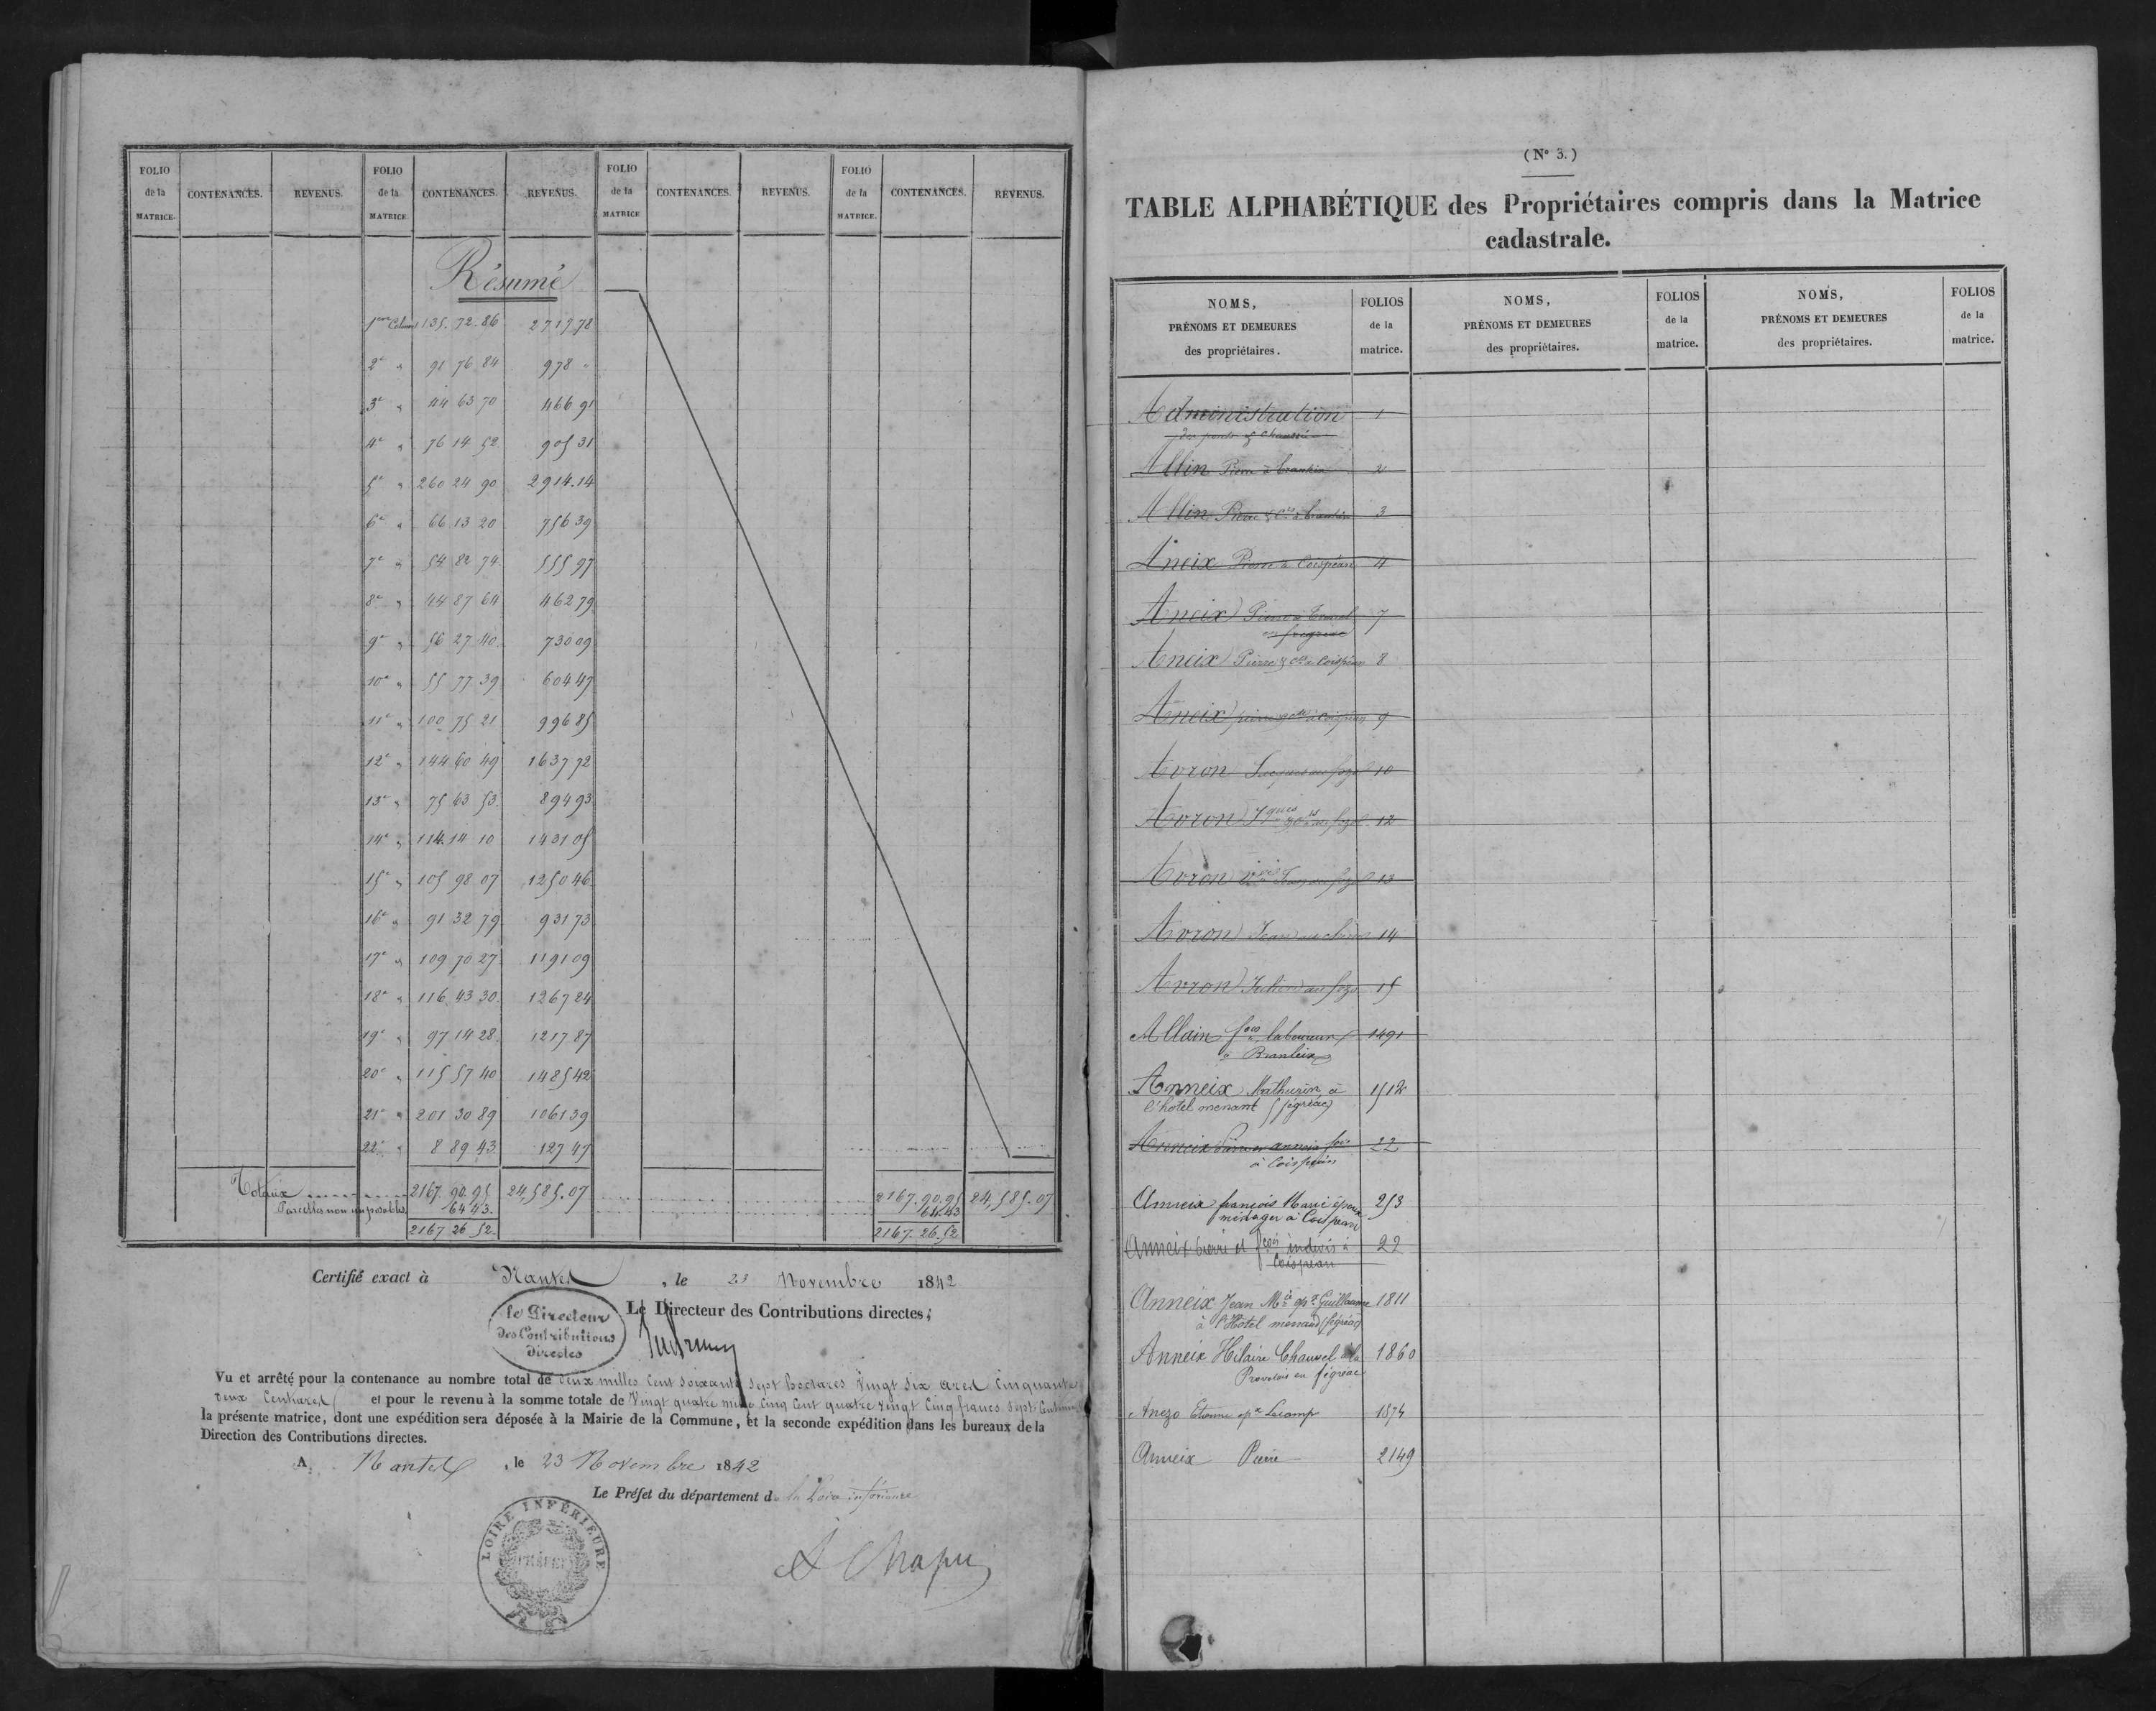 FOLIO de la MATRICE. CONTENANCES. REVENUS. FOLIO de la MATRICE. CONTENANCES. REVENUS. FOLIO de la MATRICE CONTENANCES. REVENUS. FOLIO de la MATRICE. CONTENANCES. REVENUS.
Résumé
135. 72. 86 2719 78
2e " 91 76 84 978 "
3e " 44 63 70 466 91
4e " 76 14 52 905 31
5e " 260 24 90 2914.14
6e " 66 13 20 756 39
7e " 54 82 74 555 97
8e " 44 87 64 462 79
9e " 56 27 40 730 09
10e " 55 77 39 604 47
11e " 100 75 21 996 85
12e " 144 60 49 1637 72
13e " 75 63 53 894 93
14e " 114 14 10 1431 05
15e " 105 98 07 1250 46
16e " 91 32 79 931 73
17e " 109 70 27 1191 09
18e " 116 43 30 1267 24
19e " 97 14 28 1217 87
20e " 115 57 40 1485 42
21e " 201 30 89 1061 39
22e " 8 89 43 127 47
Totaux 2167. 90. 95 24,585.07 2167. 90. 95 24,585.07
Parcelles non imposables 64 43. 64.43
2167 26 52 2167. 26. 52
Certifié exact à Nantes, le 23 Novembre 1842
Le Directeur des Contributions directes;
le Directeur
des Contributions
directes
Vu et arrêté pour la contenance au nombre total de deux milles cent soixante sept hectares vingt six ares cinquante
deux centiares et pour le revenu à la somme totale de Vingt quatre mille cinq cent quatre vingt cinq francs sept centimes
la présente matrice, dont une expédition sera déposée à la Mairie de la Commune, et la seconde expédition dans les bureaux de la
Direction des Contributions directes.
A Nantes, le 23 Novembre 1842
Le Préfet du département de la Loire inférieure
LOIRE INFÉRIEURE
PRÉFET
A Chaper
(No 3.)
TABLE ALPHABÉTIQUE des Propriétaires compris dans la Matrice
cadastrale.
NOMS, PRÉNOMS ET DEMEURES des propriétaires. FOLIOS de la matrice. NOMS, PRÉNOMS ET DEMEURES des propriétaires. FOLIOS de la matrice. NOMS, PRÉNOMS ET DEMEURES des propriétaires. FOLIOS de la matrice.
Administration 1
des ponts & chaussées
Allin Pierre à 2
Allin Pierre 3
Aneix Pierre à Coispéan 4
Aneix Pierre à 7
en fégréac
Aneix Pierre & à Coispéan 8
Aneix pierre 9
Avron Jacques au 10
Avron 12
Avron Jean au 13
Avron Jean au 14
Avron Julien au 15
Allain fois laboureur 1491
à Branleix
Anneix Mathurin à 1512
l'hotel menant (fégréac)
Anneix 22
à Coispéan
Anneix françois Marie époux 253
ménager à Coispéan
Anneix Pierre et fçois indivis à 22
Coispéan
Anneix Jean Mie epx Guillaume 1811
à l'Hotel menand (fégréac)
Anneix Hilaire Chauvel à la 1860
en fégréac
Anezo Etienne epx Lecamp 1574
Anneix Pierre 2149